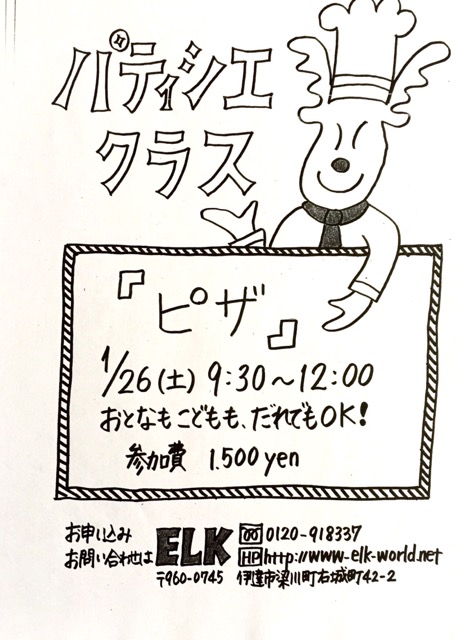 パティシエ
クラス
『ピザ』
1/26(土) 9:30～12:00
おとなもこどもも、だれでもOK!
参加費 1.500yen
お申し込み
お問い合わせは
ELK
0120-918337
HP http://www-elk-world.net
〒960-0745 伊達市梁川町右城町42-2